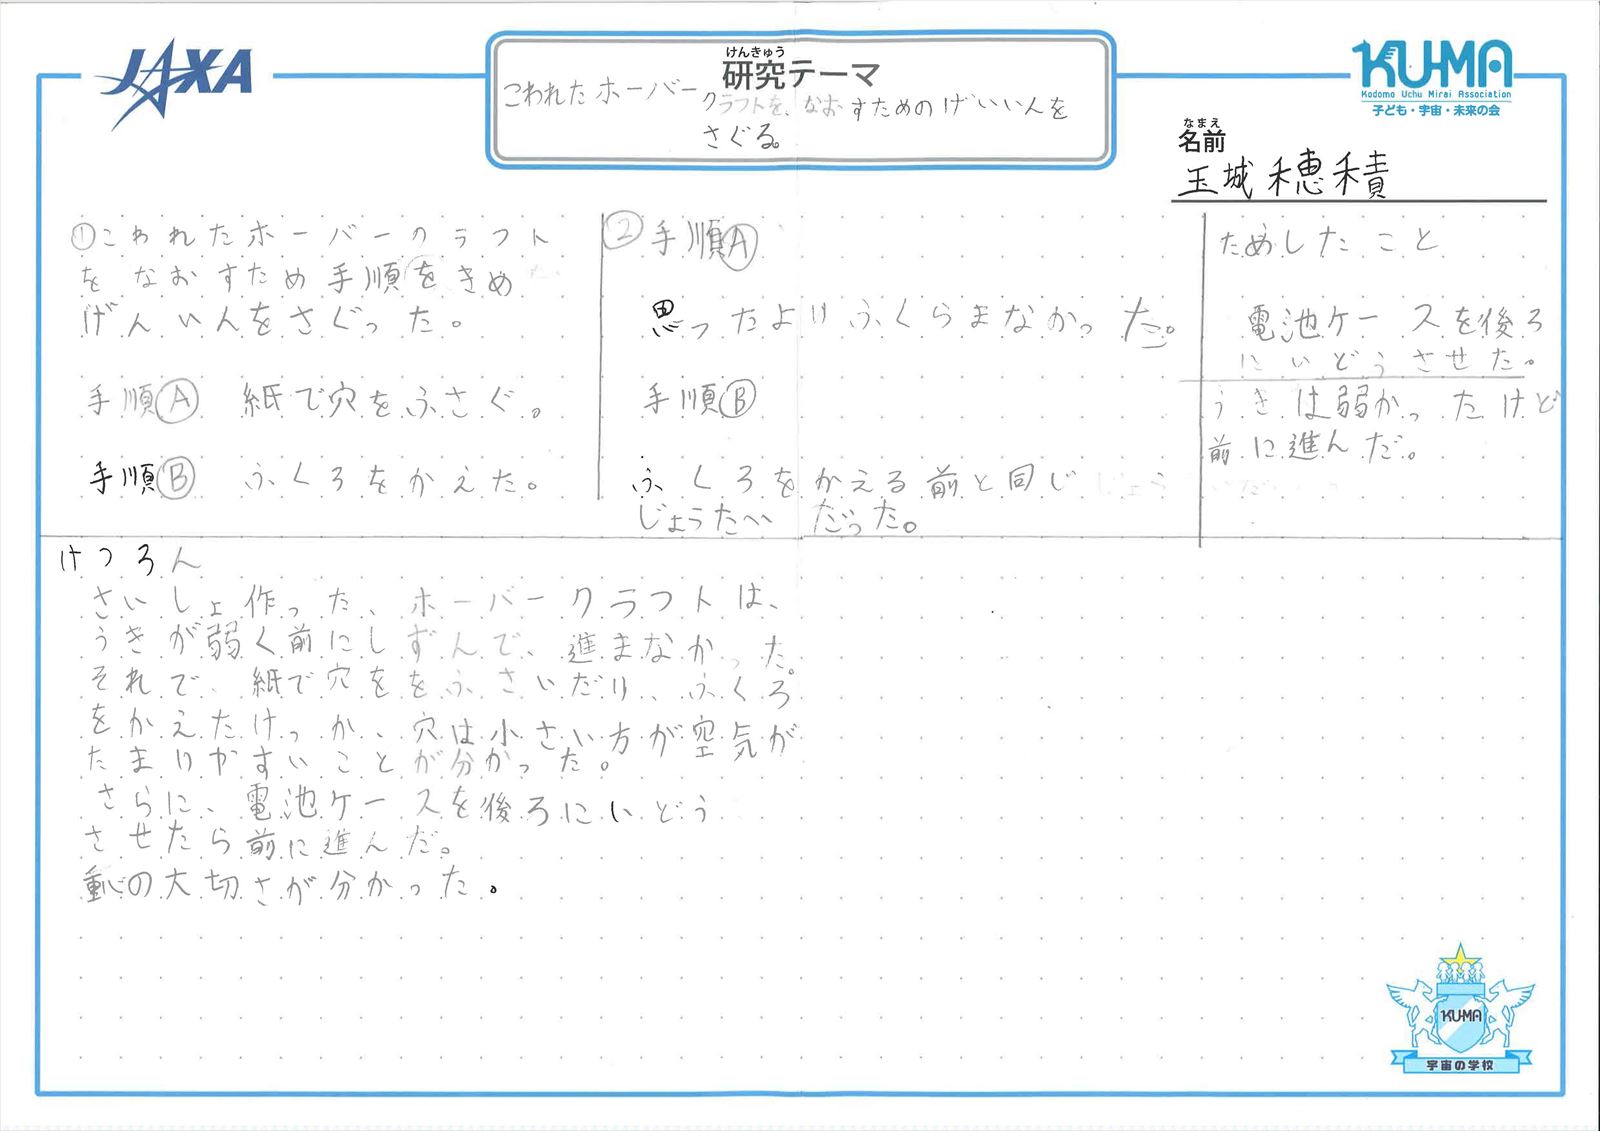 JAXA
けんきゅう
研究テーマ
こわれたホーバークラフトを、なおすためのげいいんを
さぐる。
KU-MA
Kodomo Uchu Mirai Association
子ども・宇宙・未来の会
なまえ
名前
玉城穂積
①こわれたホーバークラフト
をなおすため手順をきめ
げんいんをさぐった。
手順Ⓐ 紙で穴をふさぐ。
手順Ⓑ ふくろをかえた。
②手順Ⓐ
思ったよりふくらまなかった。
手順Ⓑ
ふくろをかえる前と同じ
じょうたいだった。
ためしたこと
電池ケースを後ろ
にいどうさせた。
うきは弱かったけど
前に進んだ。
けつろん
さいしょ作った、ホーバークラフトは、
うきが弱く前にしずんで、進まなかった。
それで、紙で穴ををふさいだり、ふくろ
をかえたけっか、穴は小さい方が空気が
たまりやすいことが分かった。
さらに、電池ケースを後ろにいどう
させたら前に進んだ。
重心の大切さが分かった。
KU-MA
宇宙の学校